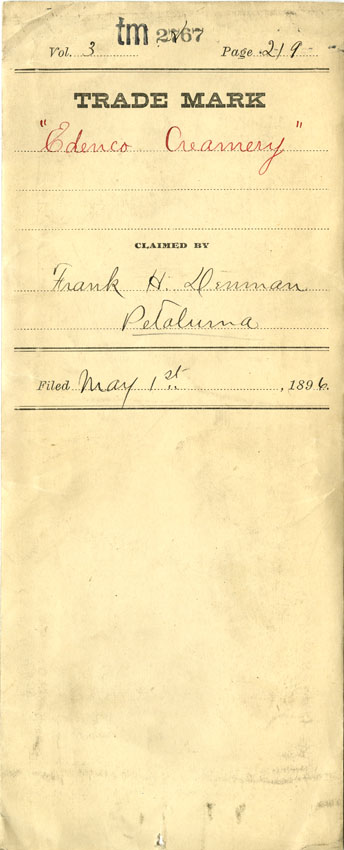 tm 2767
Vol. 3 Page 219
TRADE MARK
"Edenco Creamery"
CLAIMED BY
Frank H. Denman
Petaluma
Filed May 1st, 1896.